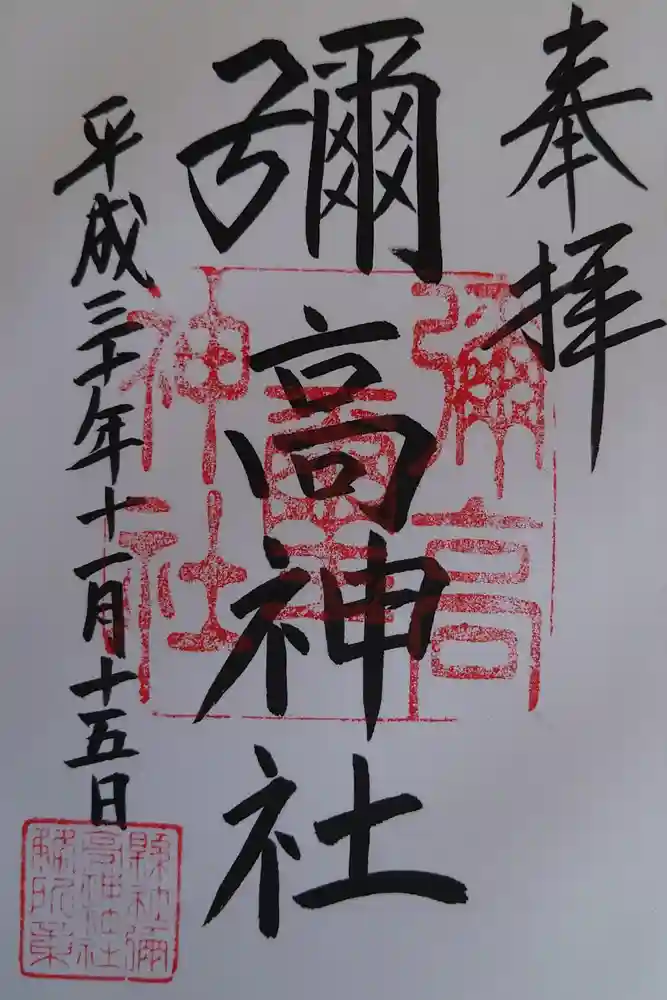 奉拝
彌高神社
平成三十年十一月十五日
彌高
神社
縣社彌
高神社社
務所